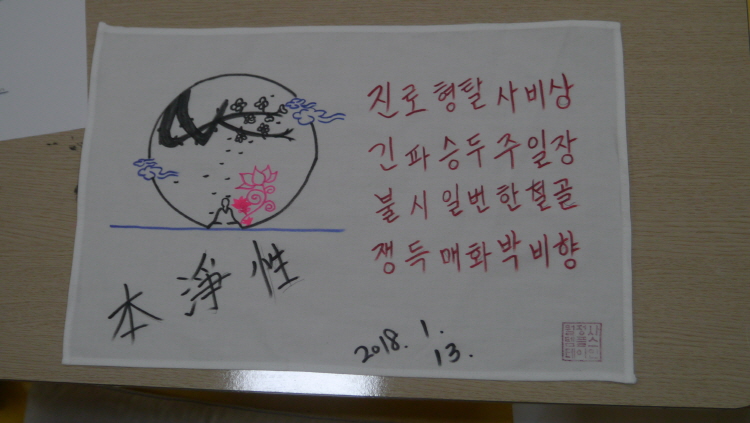 진로형탈사비상
긴파승두주일장
불시일번한철골
쟁득매화박비향
本淨性
2018. 1.
13.
월정사
템플스